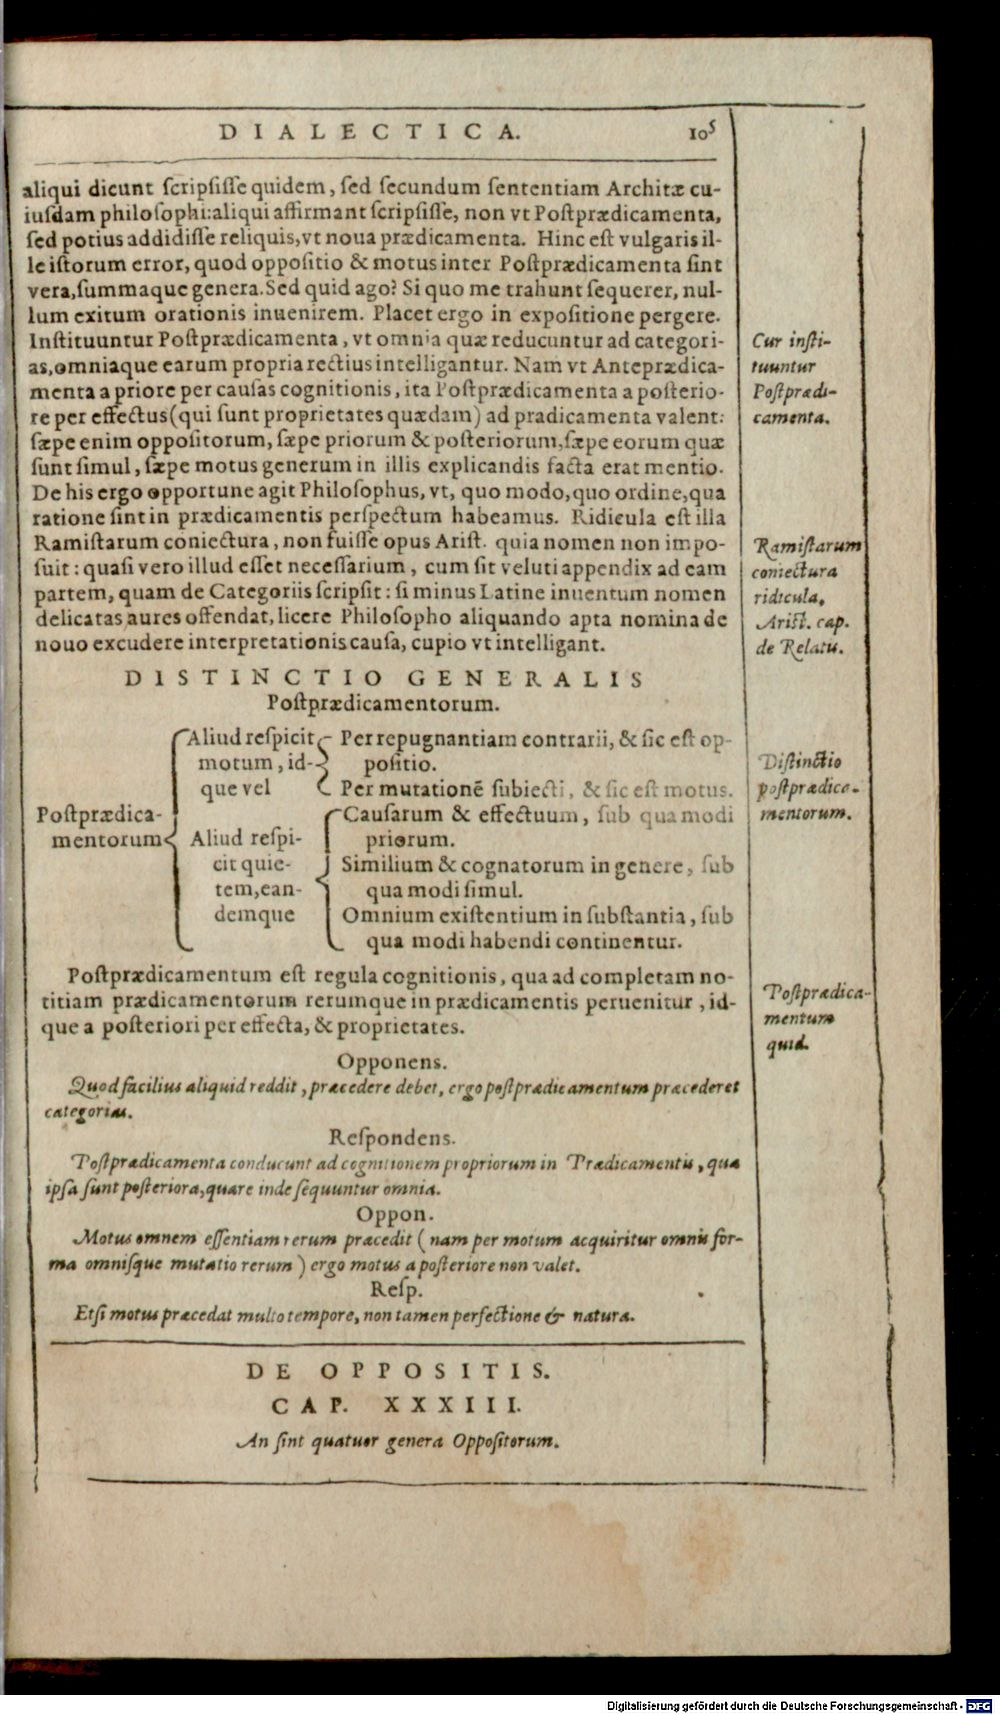 DIALECTICA. 105
aliqui dicunt scripsisse quidem, sed secundum sententiam Architæ cu-
iusdam philosophi: aliqui affirmant scripsisse, non vt Postprædicamenta,
sed potius addidisse reliquis, vt noua prædicamenta. Hinc est vulgaris il-
le istorum error, quod oppositio & motus inter Postprædicamenta sint
vera, summaque genera. Sed quid ago? Si quo me trahunt sequerer, nul-
lum exitum orationis inuenirem. Placet ergo in expositione pergere.
Instituuntur Postprædicamenta, vt omnia quæ reducuntur ad categori-
as, omniaque earum propria rectius intelligantur. Nam vt Antepræedica-
menta a priore per causas cognitionis, ita Postprædicamenta a posterio-
re per effectus (qui sunt proprietates quædam) ad pradicamenta valent:
sæpe enim oppositorum, sæpe priorum & posteriorum, sæpe eorum quæ
sunt simul, sæpe motus generum in illis explicandis facta erat mentio.
De his ergo opportune agit Philosophus, vt, quo modo, quo ordine, qua
ratione sint in prædicamentis perspectum habeamus. Ridicula est illa
Ramistarum coniectura, non fuisse opus Arist. quia nomen non impo-
suit: quasi vero illud esset necessarium, cum sit veluti appendix ad eam
partem, quam de Categoriis scripsit: si minus Latine inuentum nomen
delicatas aures offendat, licere Philosopho aliquando apta nomina de
nouo excudere interpretationis causa, cupio vt intelligant.
Cur insti-
tuuntur
Postprædi-
camenta.
Ramistarum
coniectura
ridicula.
Arist. cap.
de Relatu.
DISTINCTIO GENERALIS
Postprædicamentorum.
Postprædica-
mentorum
Aliud respicit
motum, id-
que vel
Per repugnantiam contrarii, & sic est op-
positio.
Per mutationē subiecti, & sic est motus.
Aliud respi-
cit quie-
tem, ean-
demque
Causarum & effectuum, sub qua modi
priorum.
Similium & cognatorum in genere, sub
qua modi simul.
Omnium existentium in substantia, sub
qua modi habendi continentur.
Distinctio
postprædica-
mentorum.
Postprædicamentum est regula cognitionis, qua ad completam no-
titiam prædicamentorum rerumque in prædicamentis peruenitur, id-
que a posteriori per effecta, & proprietates.
Postprædica-
mentum
quid.
Opponens.
Quod facilius aliquid reddit, præcedere debet, ergo postprædicamentum præcederet
categorias.
Respondens.
Postprædicamenta conducunt ad cognitionem propriorum in Prædicamentis, quæ
ipsa sunt posteriora, quare inde sequuntur omnia.
Oppon.
Motus omnem essentiam rerum præcedit (nam per motum acquiritur omnis for-
ma omnisque mutatio rerum) ergo motus a posteriore non valet.
Resp.
Etsi motus præcedat multo tempore, non tamen perfectione & natura.
DE OPPOSITIS.
CAP. XXXIII.
An sint quatuor genera Oppositorum.
Digitalisierung gefördert durch die Deutsche Forschungsgemeinschaft - DFG